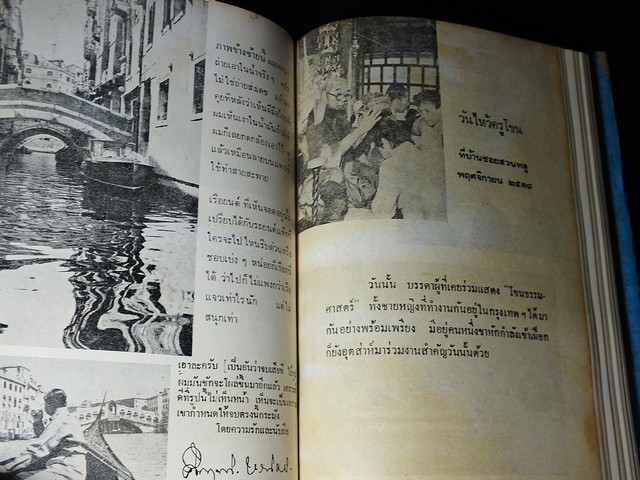 ภาพข้างซ้ายนี้
ถ่ายเอาในน้ำจริงๆ
ไม่ใช่ถ่ายสเดช
คุยทีหลังว่าเห็นฝีมือ
ผมเห็นเงาในน้ำมัน
ผมก็เลยกดกล้องเอาไว้
แล้วเหมือนลายบน
ใช้ทำสายสะพาย
เรือยนต์ ที่เห็นจอดอยู่
เปรียบได้กับรถยนต์
ใครจะไปไหนรีบด่วน
ชอบเบ่ง ๆ หน่อยก็เรียก
ได้ ว่าไปก็ไม่แพงกว่าเรือ
แจวเท่าไรนัก แต่ไม่
สนุกเท่า
เอาละครับ เป็นอันว่าจบเสียที
ผมมันชักจะโผล่ขึ้นมาอีกแล้ว
ดีที่รูปนี้ไม่เห็นหน้า เห็นจะเป็นเพราะ
เขากำหนดให้จบตรงนี้กระมัง
โดยความรักและนับถือ
วันไหว้ครูโขน
ที่บ้านซอยสวนพลู
พฤศจิกายน ๒๕๑๘
วันนั้น บรรดาผู้ที่เคยร่วมแสดง "โขนธรรม-
ศาสตร์" ทั้งชายหญิงที่ทำงานกันอยู่ในกรุงเทพ ฯ ได้มา
กันอย่างพร้อมเพรียง มีอยู่คนหนึ่งขาหักกำลังเข้าเฝือก
ก็ยังอุตส่าห์มาร่วมงานสำคัญวันนั้นด้วย